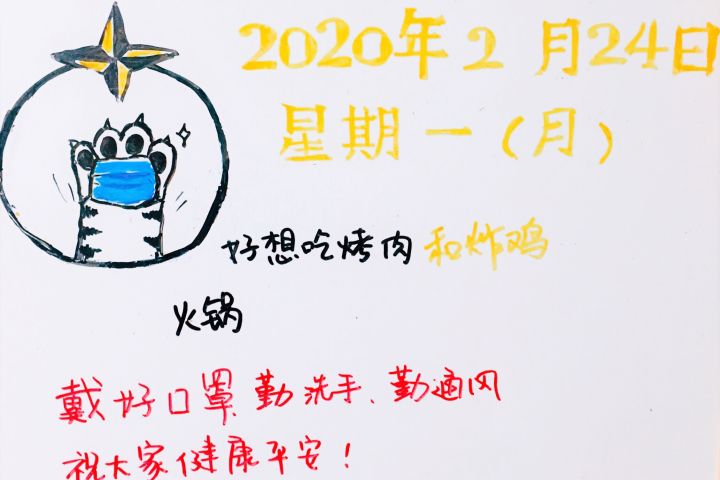 2020年2月24日
星期一(月)
好想吃烤肉和炸鸡
火锅
戴好口罩勤洗手、勤通风
祝大家健康平安!